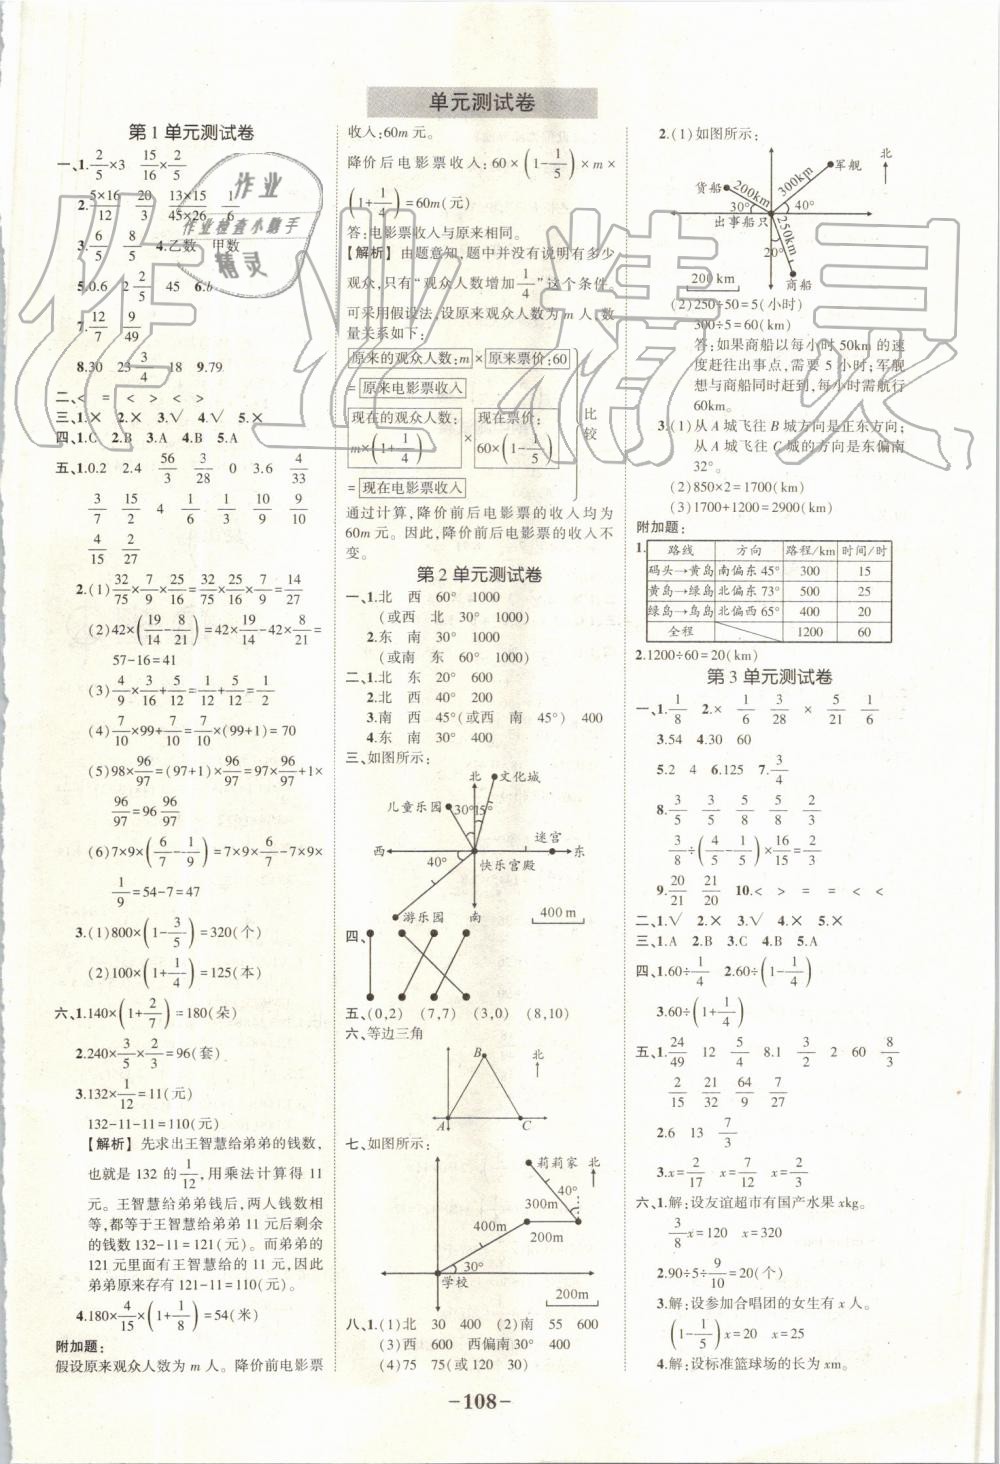 单元测试卷
第 1 单元测试卷
一、1. 2/5×3 15/16×2/5
2. 5×16/12 20/3 13×15/45×26 1/6
3. 6/5 8/5 4.乙数 甲数
5.0.6 2 2/5 45 6.b
7. 12/7 9/49
8.30 23 3/4 18 9.79
二、< = < > < >
三、1.× 2.× 3.√ 4.√ 5.×
四、1.C 2.B 3.A 4.B 5.A
五、1.0.2 2.4 56/3 3/28 0 3.6 4/33
3/7 15/2 4 1/6 1/3 10/9 9/10
4/15 2/27
2.(1) 32/75×7/9×25/16=32/75×25/16×7/9=14/27
(2)42×(19/14-8/21)=42×19/14-42×8/21=
57-16=41
(3) 4/9×3/16+5/12=1/12+5/12=1/2
(4) 7/10×99+7/10=7/10×(99+1)=70
(5)98×96/97=(97+1)×96/97=97×96/97+1×
96/97=96 96/97
(6)7×9×(6/7-1/9)=7×9×6/7-7×9×
1/9=54-7=47
3.(1)800×(1-3/5)=320(个)
(2)100×(1+1/4)=125(本)
六、1.140×(1+2/7)=180(朵)
2.240×3/5×2/3=96(套)
3.132×1/12=11(元)
132-11-11=110(元)
【解析】 先求出王智慧给弟弟的钱数,
也就是 132 的1/12,用乘法计算得 11
元。王智慧给弟弟钱后,两人钱数相
等,都等于王智慧给弟弟 11 元后剩余
的钱数 132-11=121(元)。而弟弟的
121 元里面有王智慧给的 11 元,因此
弟弟原来存有 121-11=110(元)。
4.180×4/15×(1+1/8)=54(米)
附加题:
假设原来观众人数为 m 人。降价前电影票
收入:60m 元。
降价后电影票收入:60×(1-1/5)×m×
(1+1/4)=60m(元)
答:电影票收入与原来相同。
【解析】 由题意知,题中并没有说明有多少
观众,只有“观众人数增加1/4”这个条件。
可采用假设法,设原来观众人数为 m 人,数
量关系如下:
原来的观众人数:m × 原来票价:60
= 原来电影票收入
现在的观众人数: m×(1+1/4) × 现在票价: 60×(1-1/5)
= 现在电影票收入
比较
通过计算,降价前后电影票的收入均为
60m 元。因此,降价前后电影票的收入不
变。
第 2 单元测试卷
一、1.北 西 60° 1000
(或西 北 30° 1000)
2.东 南 30° 1000
(或南 东 60° 1000)
二、1.北 东 20° 600
2.北 西 40° 200
3.南 西 45°(或西 南 45°) 400
4.东 南 30° 400
三、如图所示:
北 文化城
儿童乐园 30° 15°
迷宫
西 东
40° 快乐宫殿
游乐园 南 400 m
四、
五、(0,2) (7,7) (3,0) (8,10)
六、等边三角
B 北
A C
七、如图所示:
莉莉家 北
40°
300m
400m 200m
30°
学校
200m
八、1.(1)北 30 400 (2)南 55 600
(3)西 600 西偏南30° 400
(4)75 75(或 120 30)
2.(1)如图所示:
军舰 北
货船 200km 300km
30° 40°
出事船只 250km
20°
200 km 商船
(2)250÷50=5(小时)
300÷5=60(km)
答:如果商船以每小时 50km 的速
度赶往出事点,需要 5 小时;军舰
想与商船同时赶到,每小时需航行
60km。
3.(1)从 A 城飞往 B 城方向是正东方向;
从 A 城飞往 C 城的方向是东偏南
32°。
(2)850×2=1700(km)
(3)1700+1200=2900(km)
附加题:
1.
路线 方向 路程/km 时间/时
码头→黄岛 南偏东 45° 300 15
黄岛→绿岛 北偏东 73° 500 25
绿岛→鸟岛 北偏西 65° 400 20
全程 1200 60
2.1200÷60=20(km)
第 3 单元测试卷
一、1. 1/8 2.× 1/6 3/28 × 5/21 1/6
3.54 4.30 60
5.2 4 6.125 7. 3/4
8. 3/5 5/3 5/8 5/8 2/3
3/8÷(4/5-1/5)×16/15=2/3
9. 20/21 21/20 10.< > = = < <
二、1.√ 2.× 3.√ 4.× 5.×
三、1.A 2.B 3.C 4.B 5.A
四、1.60÷1/4 2.60÷(1-1/4)
3.60÷(1+1/4)
五、1. 24/49 12 5/4 8.1 3/2 2 60 8/3
2/15 21/32 64/9 7/27
2.6 13 7/3
3.x=2/17 x=7/12 x=2/3
六、1.解:设友谊超市有国产水果 xkg。
3/8x=120 x=320
2.90÷5÷9/10=20(个)
3.解:设参加合唱团的女生有 x 人。
(1-1/5)x=20 x=25
4.解:设标准篮球场的长为 xm。
-108-
作业
作业检查小助手
精灵
作业精灵